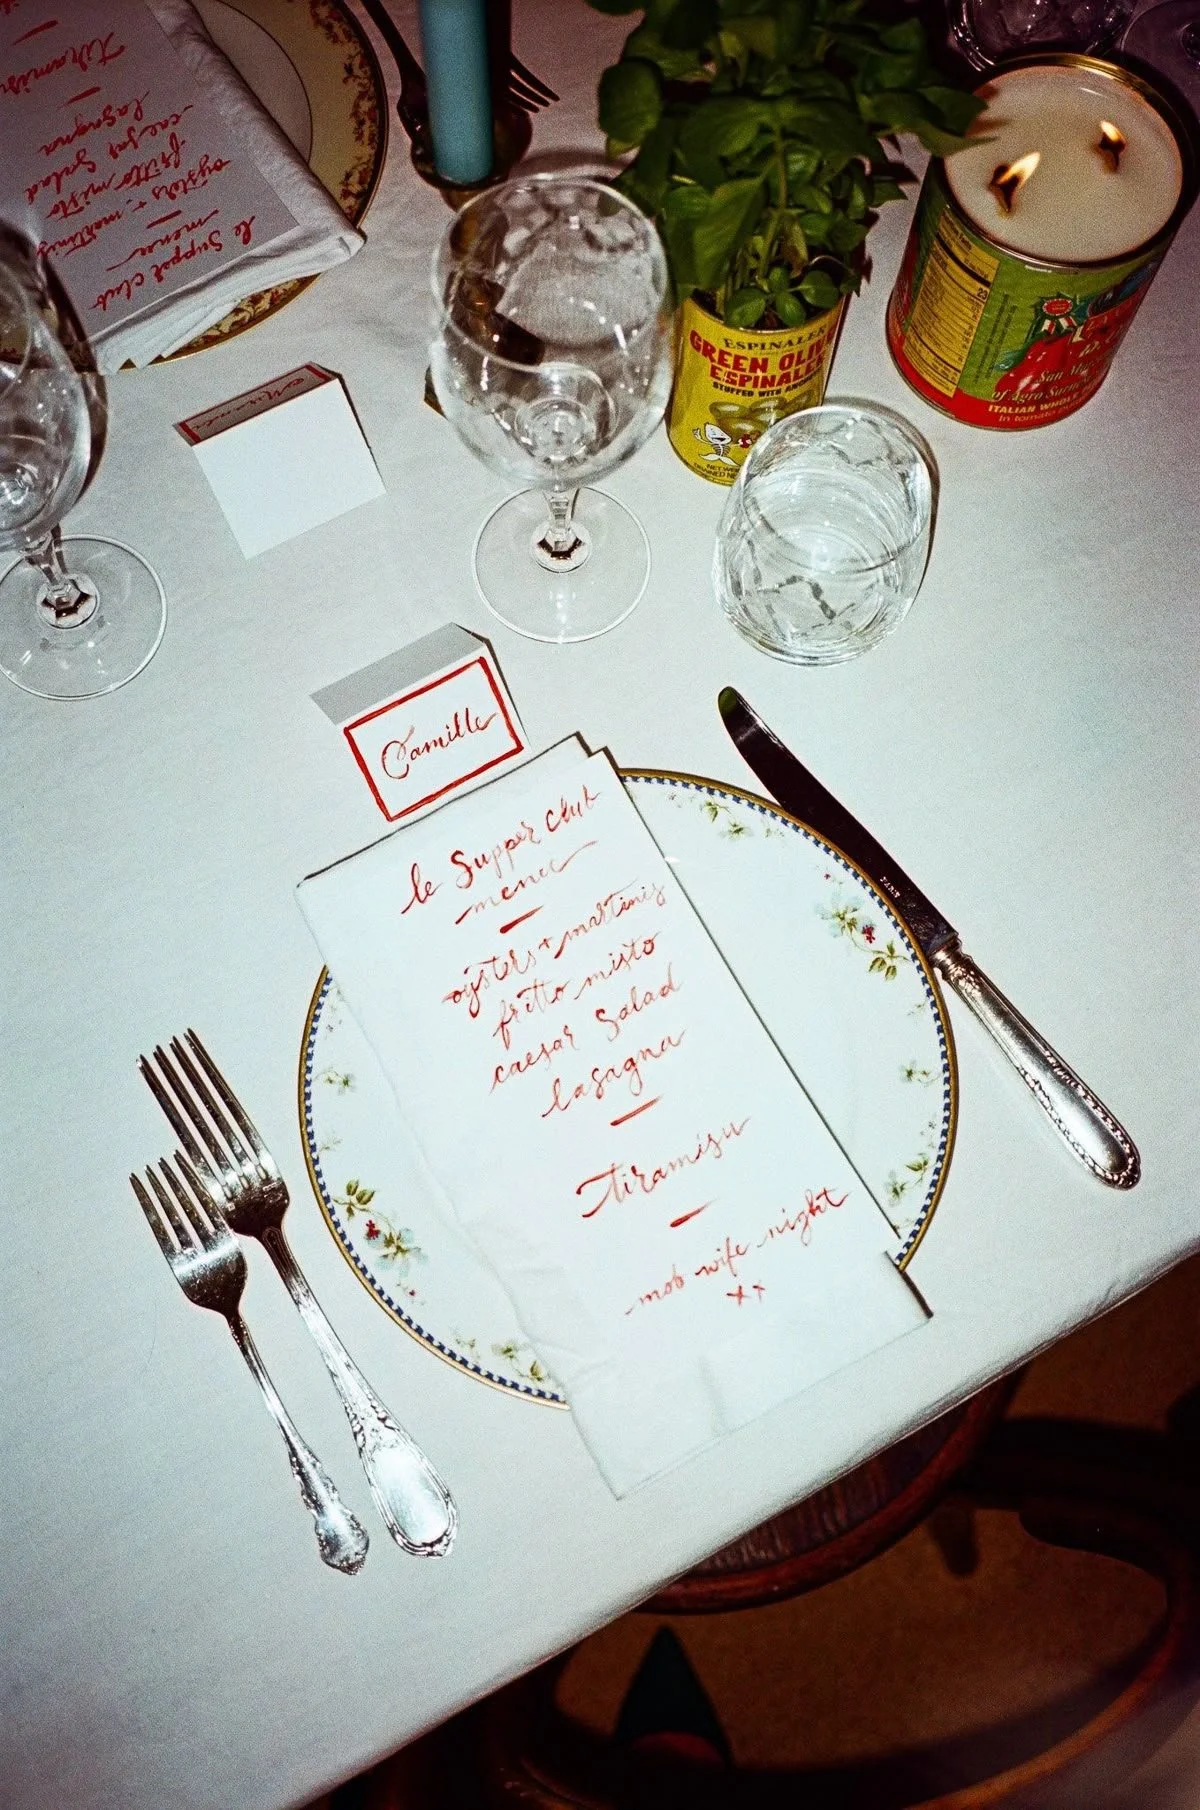 le Supper club
menee
oysters + martinis
fritto misto
caesar Salad
lasagna
Tiramisu
le Supper club
menee
oysters + martinis
fritto misto
caesar Salad
lasagna
tiramisu
mob wife night
xx
Camille
ESPINALER
GREEN OLIVES
ESPINALER
STUFFED WITH
San
of Agro Sarnese
ITALIAN WHOLE
In tomato
PARIS